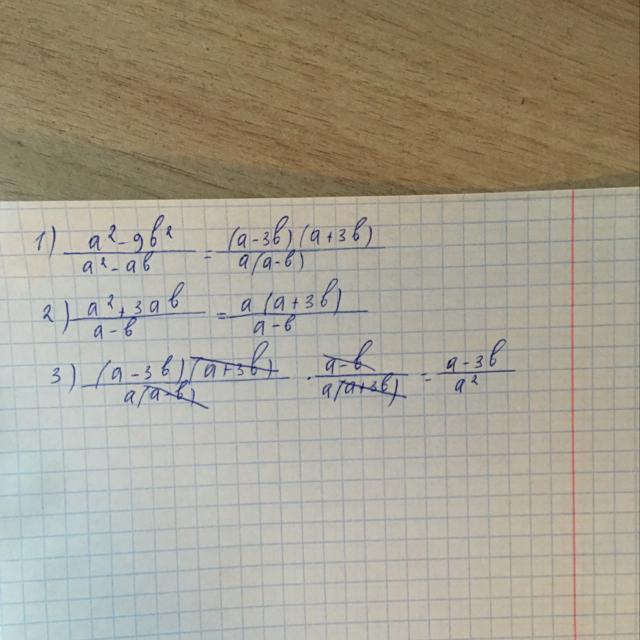 1) (a² - 9b²)/(a² - ab) = ((a-3b)(a+3b))/(a(a-b))
2) (a² + 3ab)/(a-b) = (a(a+3b))/(a-b)
3) ((a-3b)(a+3b))/(a(a-b)) · (a-b)/(a(a+3b)) = (a-3b)/a²